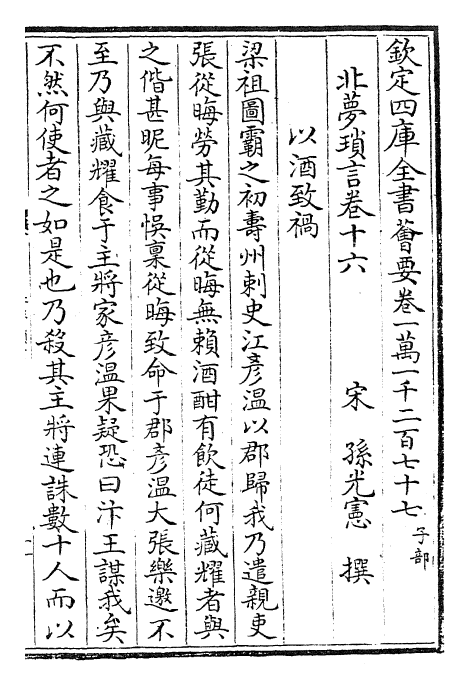 欽定四庫全書薈要卷一萬一千二百七十七 子部
北夢瑣言卷十六
宋 孫光憲 撰
以酒致禍
梁祖圖霸之初壽州刺史江彥溫以郡歸我乃遣親吏
張從晦勞其勤而從晦無賴酒酣有飲徒何藏耀者與
之偕甚昵每事悞稟從晦致命于郡彥溫大張樂邀不
至乃與藏耀食于主將家彥溫果疑恐曰汴王謀我矣
不然何使者之如是也乃殺其主將連誅數十人而以